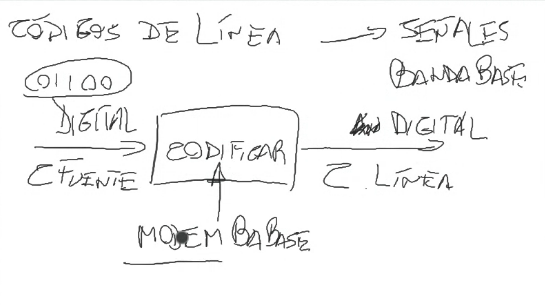 CÓDIGOS DE LÍNEA → SEÑALES
BANDA BASE
01100
DIGITAL
C FUENTE
CODIFICAR
DIGITAL
C. LÍNEA
MODEM BABASE